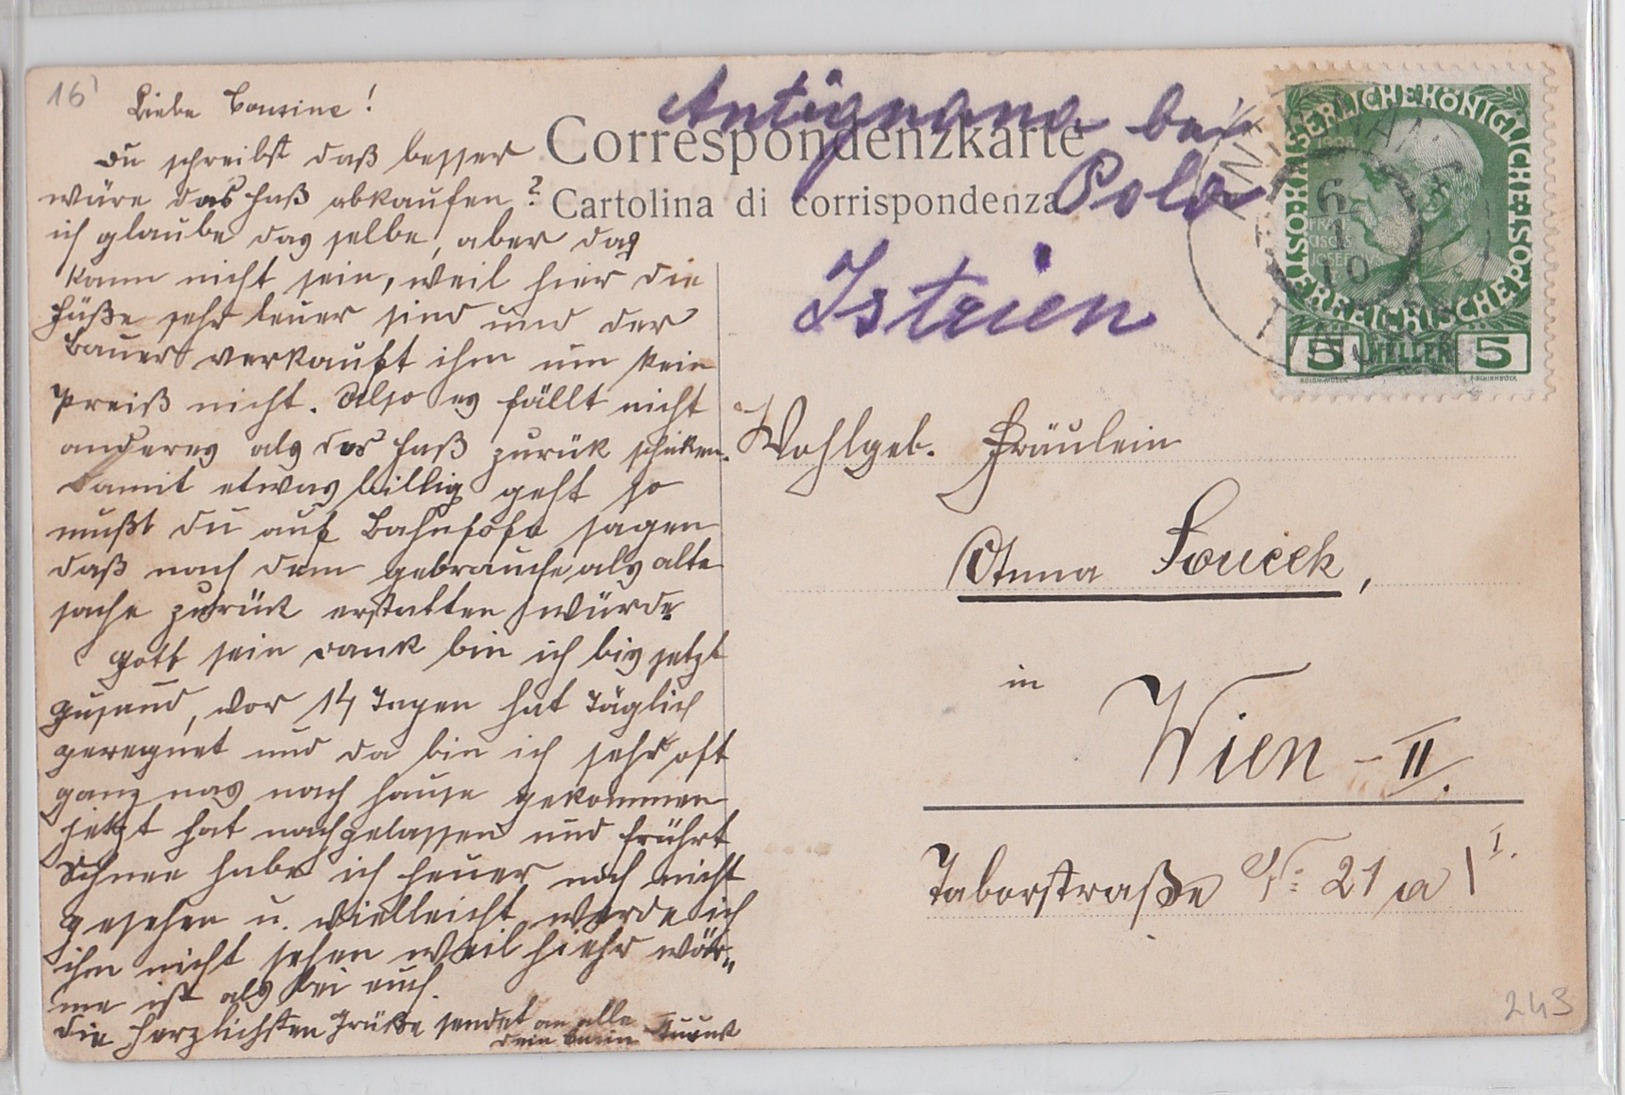 16
Liebe Cousine!
Du schreibst daß besser
wäre das Faß abkaufen?
ich glaube das selbe, aber das
kann nicht sein, weil hier die
Fäße sehr teuer sind und der
Bauer verkauft ihm um kein
Preiß nicht. Also es fällt nicht
anderes als das Faß zurük schiken.
Damit etwas billig geht so
mußt Du auf Bahnhofe sagen
daß nach dem gebrauche als alte
sache zurück erstatten würde.
Gott sein dank bin ich bis jetzt
gusund, vor 14 Tagen hat Täglich
geregnet und da bin ich sehr oft
ganz nas nach hause gekommen
jetzt hat nachgelassen und
Schnee habe ich heuer noch nicht
gesehen u. vielleicht werde ich
ihm nicht sehen weil hiehr wär„
me ist als bei euch.
Die herzlichsten Grüße sendet an alle
dein
Correspondenzkarte
Cartolina di corrispondenza
Antignana bei
Pola
Istrien
KAISERLICHE KÖNIGLICHE ÖSTERREICHISCHE POST
FRAN
CISCVS
IOSEPHVS
5 HELLER 5
6
10
Wohlgeb. Fräulein
Anna Soucek,
in
Wien - II.
Taborstraße Nr: 21 a / I.
243